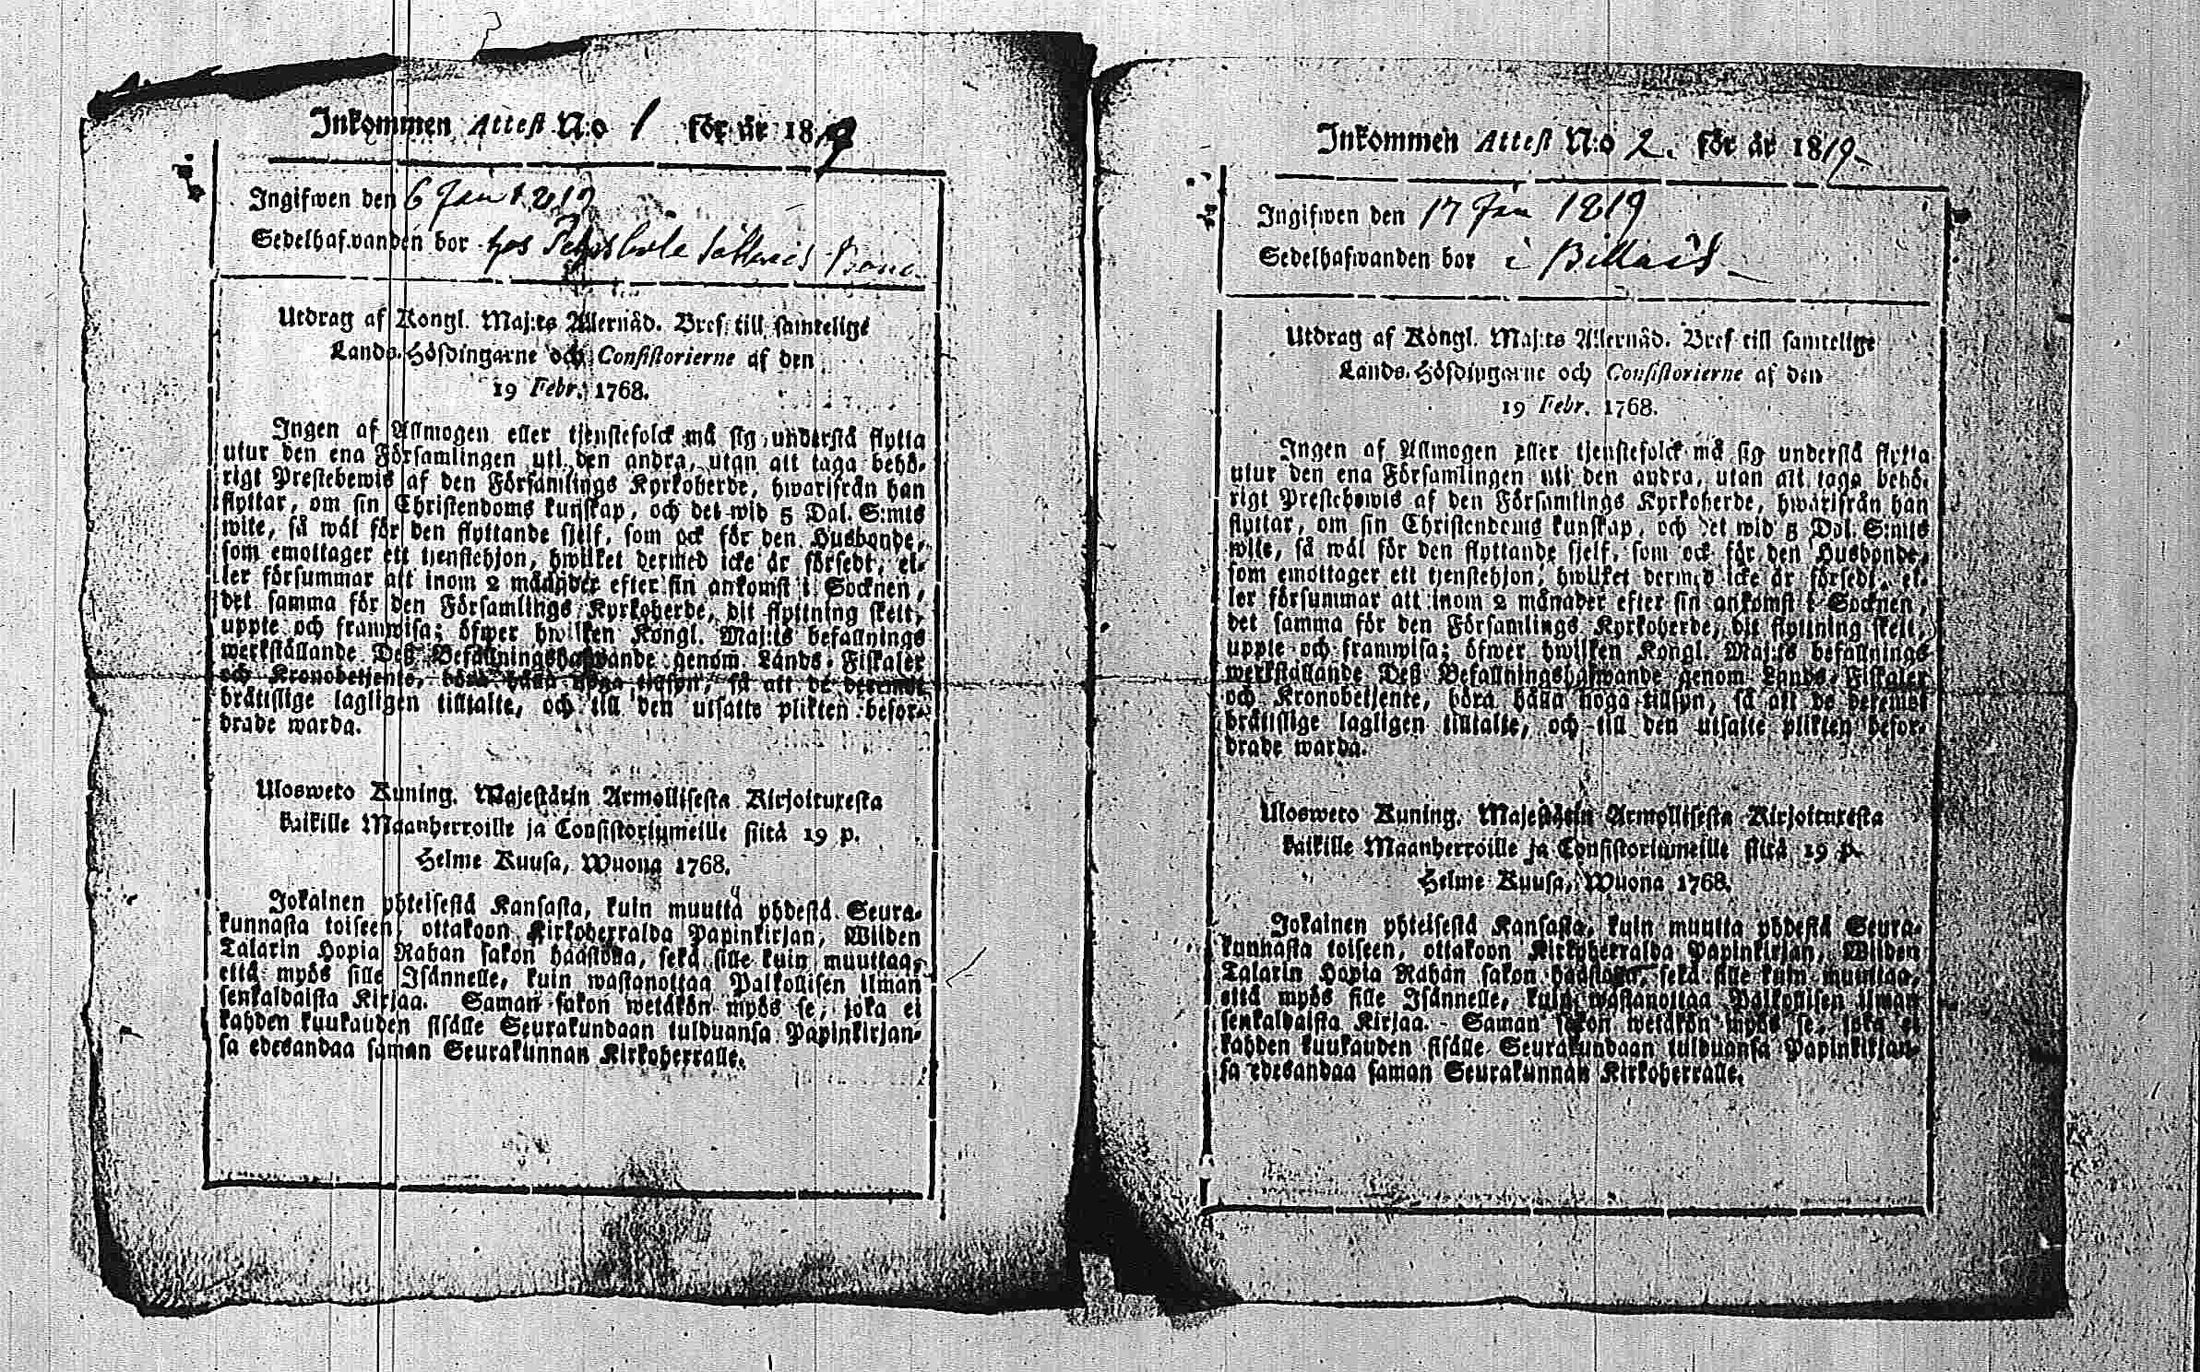 Inkommen Attest N:o 1 för år 1819
Ingifwen den 6 Jan 1819
Sedelhafvanden bor hos
Utdrag af Kongl. Maj:ts Allernåd. Bref till samtelige
Lands-Höfdingarne och Consistorierne af den
19 Febr. 1768.
Ingen af Allmogen eller tjenstefolck må sig understå flytta
utur den ena Församlingen uti den andra, utan att taga behö-
rigt Prestebewis af den Församlings Kyrkoherde, hwarifrån han
flyttar, om sin Christendoms kunskap, och det wid 5 Dal. S:mts
wite, så wäl för den flyttande sjelf, som ock för den Husbonde,
som emottager ett tjenstehjon, hwilket dermed icke är försedt, el-
ler försummar att inom 2 månader efter sin ankomst i Socknen,
det samma för den Församlings Kyrkoherde, dit flyttning skett,
uppte och framwisa; öfwer hwilken Kongl. Maj:ts befallnings
werkställande Deß Befallningshafwande genom Lands-Fiskaler
och Kronobetjente, böra hålla noga tillsyn, så att de deremot
bråttslige lagligen tilltalte, och till den utsatte plikten befor-
drade warda.
Ulosweto Kuning. Majestätin Armollisesta Kirjoituxesta
kaikille Maanherroille ja Consistoriumeille siitä 19 p.
Helme Kuusa, Wuona 1768.
Jokainen yhteisestä Kansasta, kuin muuttä yhdestä Seura-
kunnasta toiseen, ottakoon Kirkoherralda Papinkirjan, Wilden
Talarin Hopia Rahan sakon haastolla, sekä sille kuin muuttaa,
että myös sille Isännelle, kuin wastanottaa Palkollisen ilman
senkaldaista Kirjaa. Saman sakon wetäkön myös se, joka ei
kahden kuukauden sisälle Seurakundaan tulduansa Papinkirjan-
sa edesandaa saman Seurakunnan Kirkoherralle.
Inkommen Attest N:o 2. för år 1819
Ingifwen den 17 Jan 1819
Sedelhafwanden bor i Billnäs
Utdrag af Kongl. Maj:ts Allernåd. Bref till samtelige
Lands-Höfdingarne och Consistorierne af den
19 Febr. 1768.
Ingen af Allmogen eller tjenstefolck må sig understå flytta
utur den ena Församlingen uti den andra, utan att taga behö-
rigt Prestebewis af den Församlings Kyrkoherde, hwarifrån han
flyttar, om sin Christendoms kunskap, och det wid 5 Dal. S:mts
wite, så wäl för den flyttande sjelf, som ock för den Husbonde,
som emottager ett tjenstehjon, hwilket dermed icke är försedt, el-
ler försummar att inom 2 månader efter sin ankomst i Socknen,
det samma för den Församlings Kyrkoherde, dit flyttning skett,
uppte och framwisa; öfwer hwilken Kongl. Maj:ts befallnings
werkställande Deß Befallningshafwande genom Lands-Fiskaler
och Kronobetjente, böra hålla noga tillsyn, så att de deremot
bråttslige lagligen tilltalte, och till den utsatte plikten befor-
drade warda.
Ulosweto Kuning. Majestätin Armollisesta Kirjoituxesta
kaikille Maanherroille ja Consistoriumeille siitä 19 p.
Helme Kuusa, Wuona 1768.
Jokainen yhteisestä Kansasta, kuin muutta yhdestä Seura-
kunnasta toiseen, ottakoon Kirkoherralda Papinkirjan, Wilden
Talarin Hopia Rahan sakon haastolla, sekä sille kuin muuttaa,
että myös sille Isännelle, kuin wastanottaa Palkollisen ilman
senkaldaista Kirjaa. Saman sakon wetäkön myös se, joka ei
kahden kuukauden sisälle Seurakundaan tulduansa Papinkirjan-
sa edesandaa saman Seurakunnan Kirkoherralle.